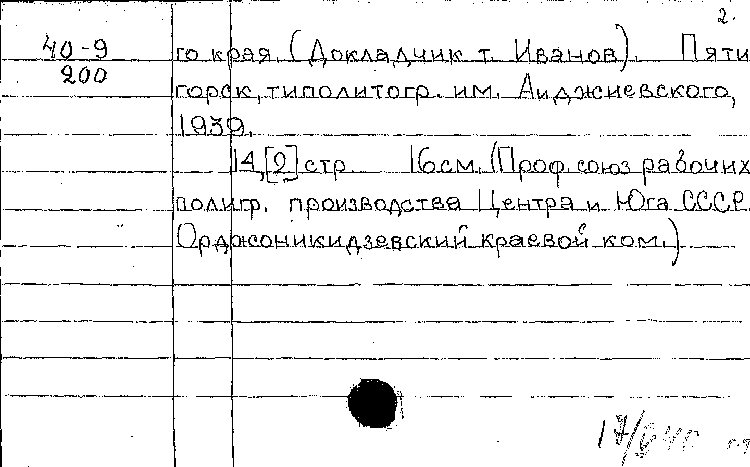 2.
40-9
200
го края. (Докладчик т. Иванов). Пяти
горск, типолитогр. им. Анджиевского,
1939.
14,[2] стр 16см. (Проф. союз рабочих
полигр. производства Центра и Юга СССР.
Орджоникидзевский краевой ком.)